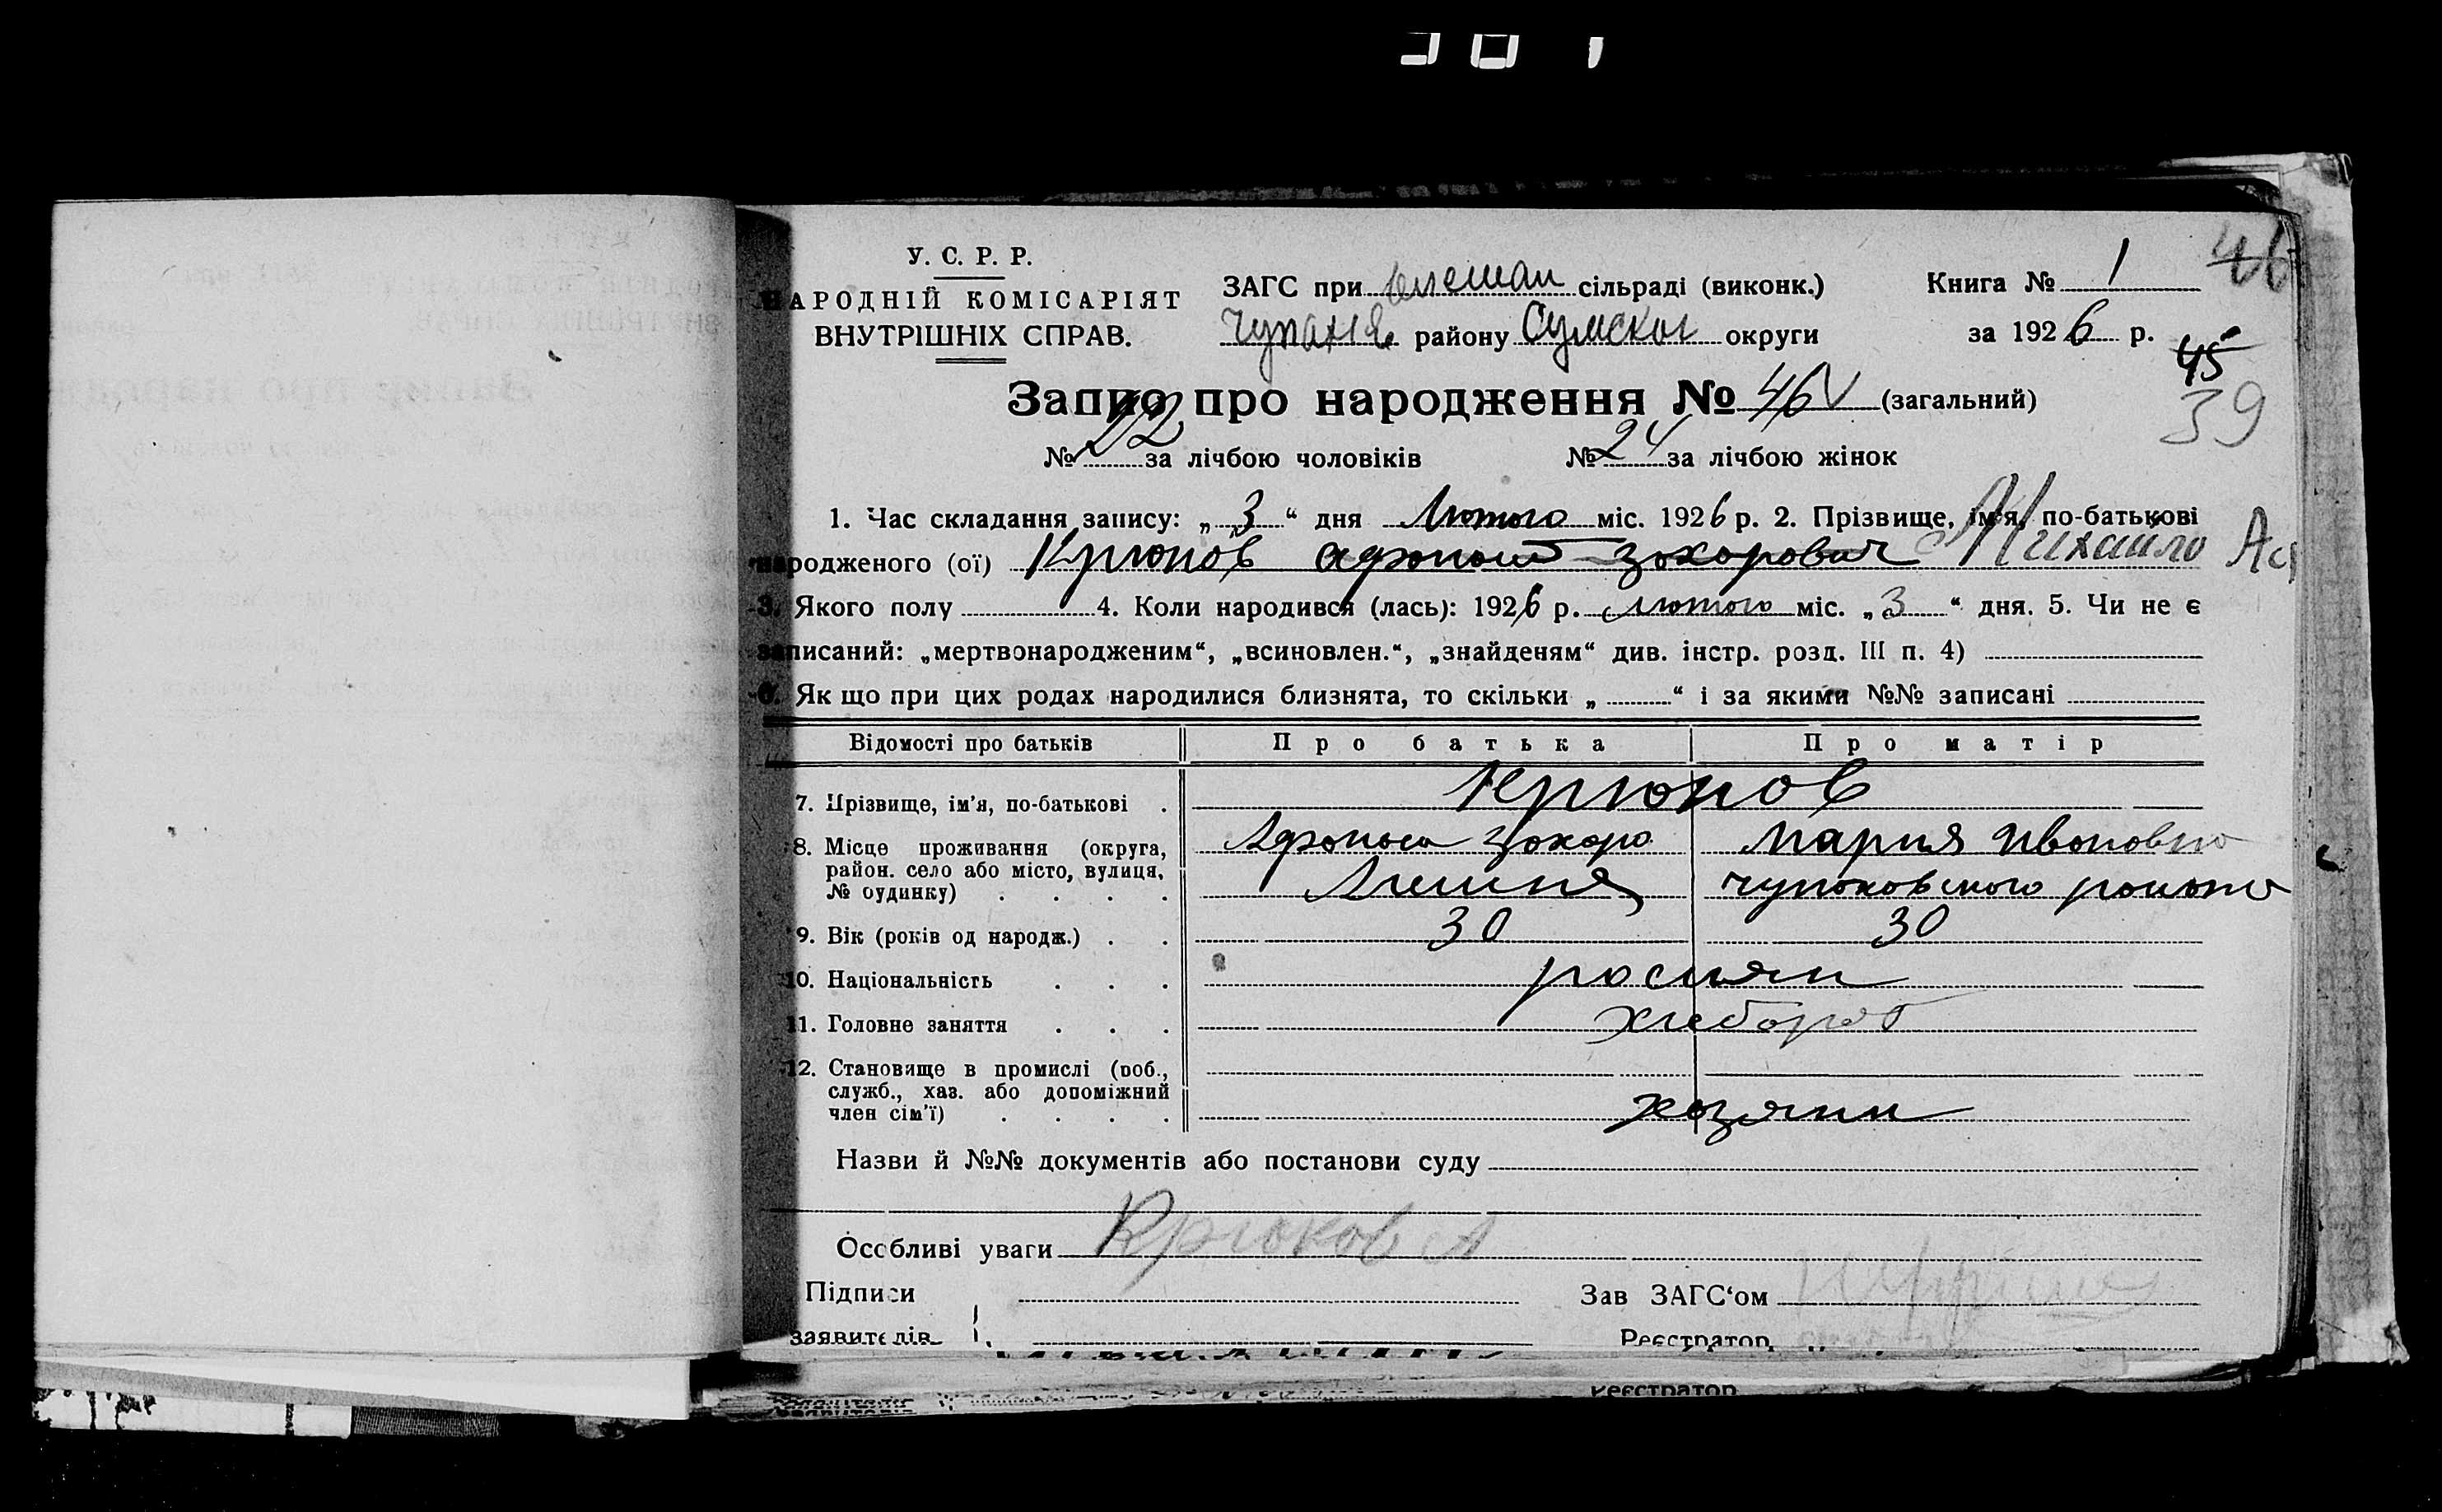 У. С. Р. Р.
НАРОДНІЙ КОМІСАРІЯТ
ВНУТРІШНІХ СПРАВ.
ЗАГС при сільраді (виконк.)
району округи
Книга № 1
за 1926 р.
46
45
39
Запис про народження № 46 (загальний)
№ 22 за лічбою чоловіків № 24 за лічбою жінок
1. Час складання запису: „ 3 “ дня Лютого міс. 1926 р. 2. Прізвище, ім'я, по-батькові
народженого (ої) Крюков Михайло
3. Якого полу 4. Коли народився (лась): 1926 р. лютого міс. „ 3 “ дня. 5. Чи не є
записаний: „мертвонародженим“, „всиновлен.“, „знайденям“ див. інстр. розд. III п. 4)
6. Як що при цих родах народилися близнята, то скільки „ “ і за якими №№ записані
Відомості про батьків Про батька Про матір
7. Прізвище, ім'я, по-батькові . Крюков
8. Місце проживання (округа, Мария Ивоновно
район. село або місто, вулиця,
№ будинку) . . . .
9. Вік (років од народж.) . . 30 30
10. Національність . . . росиян
11. Головне заняття . . . хлебороб
12. Становище в промислі (роб.,
служб., хаз. або допоміжний
член сім'ї) . . . . хозяин
Назви й №№ документів або постанови суду
Особливі уваги Крюков А
Підписи Зав ЗАГС‘ом
заявителів Реєстратор
Реєстратор